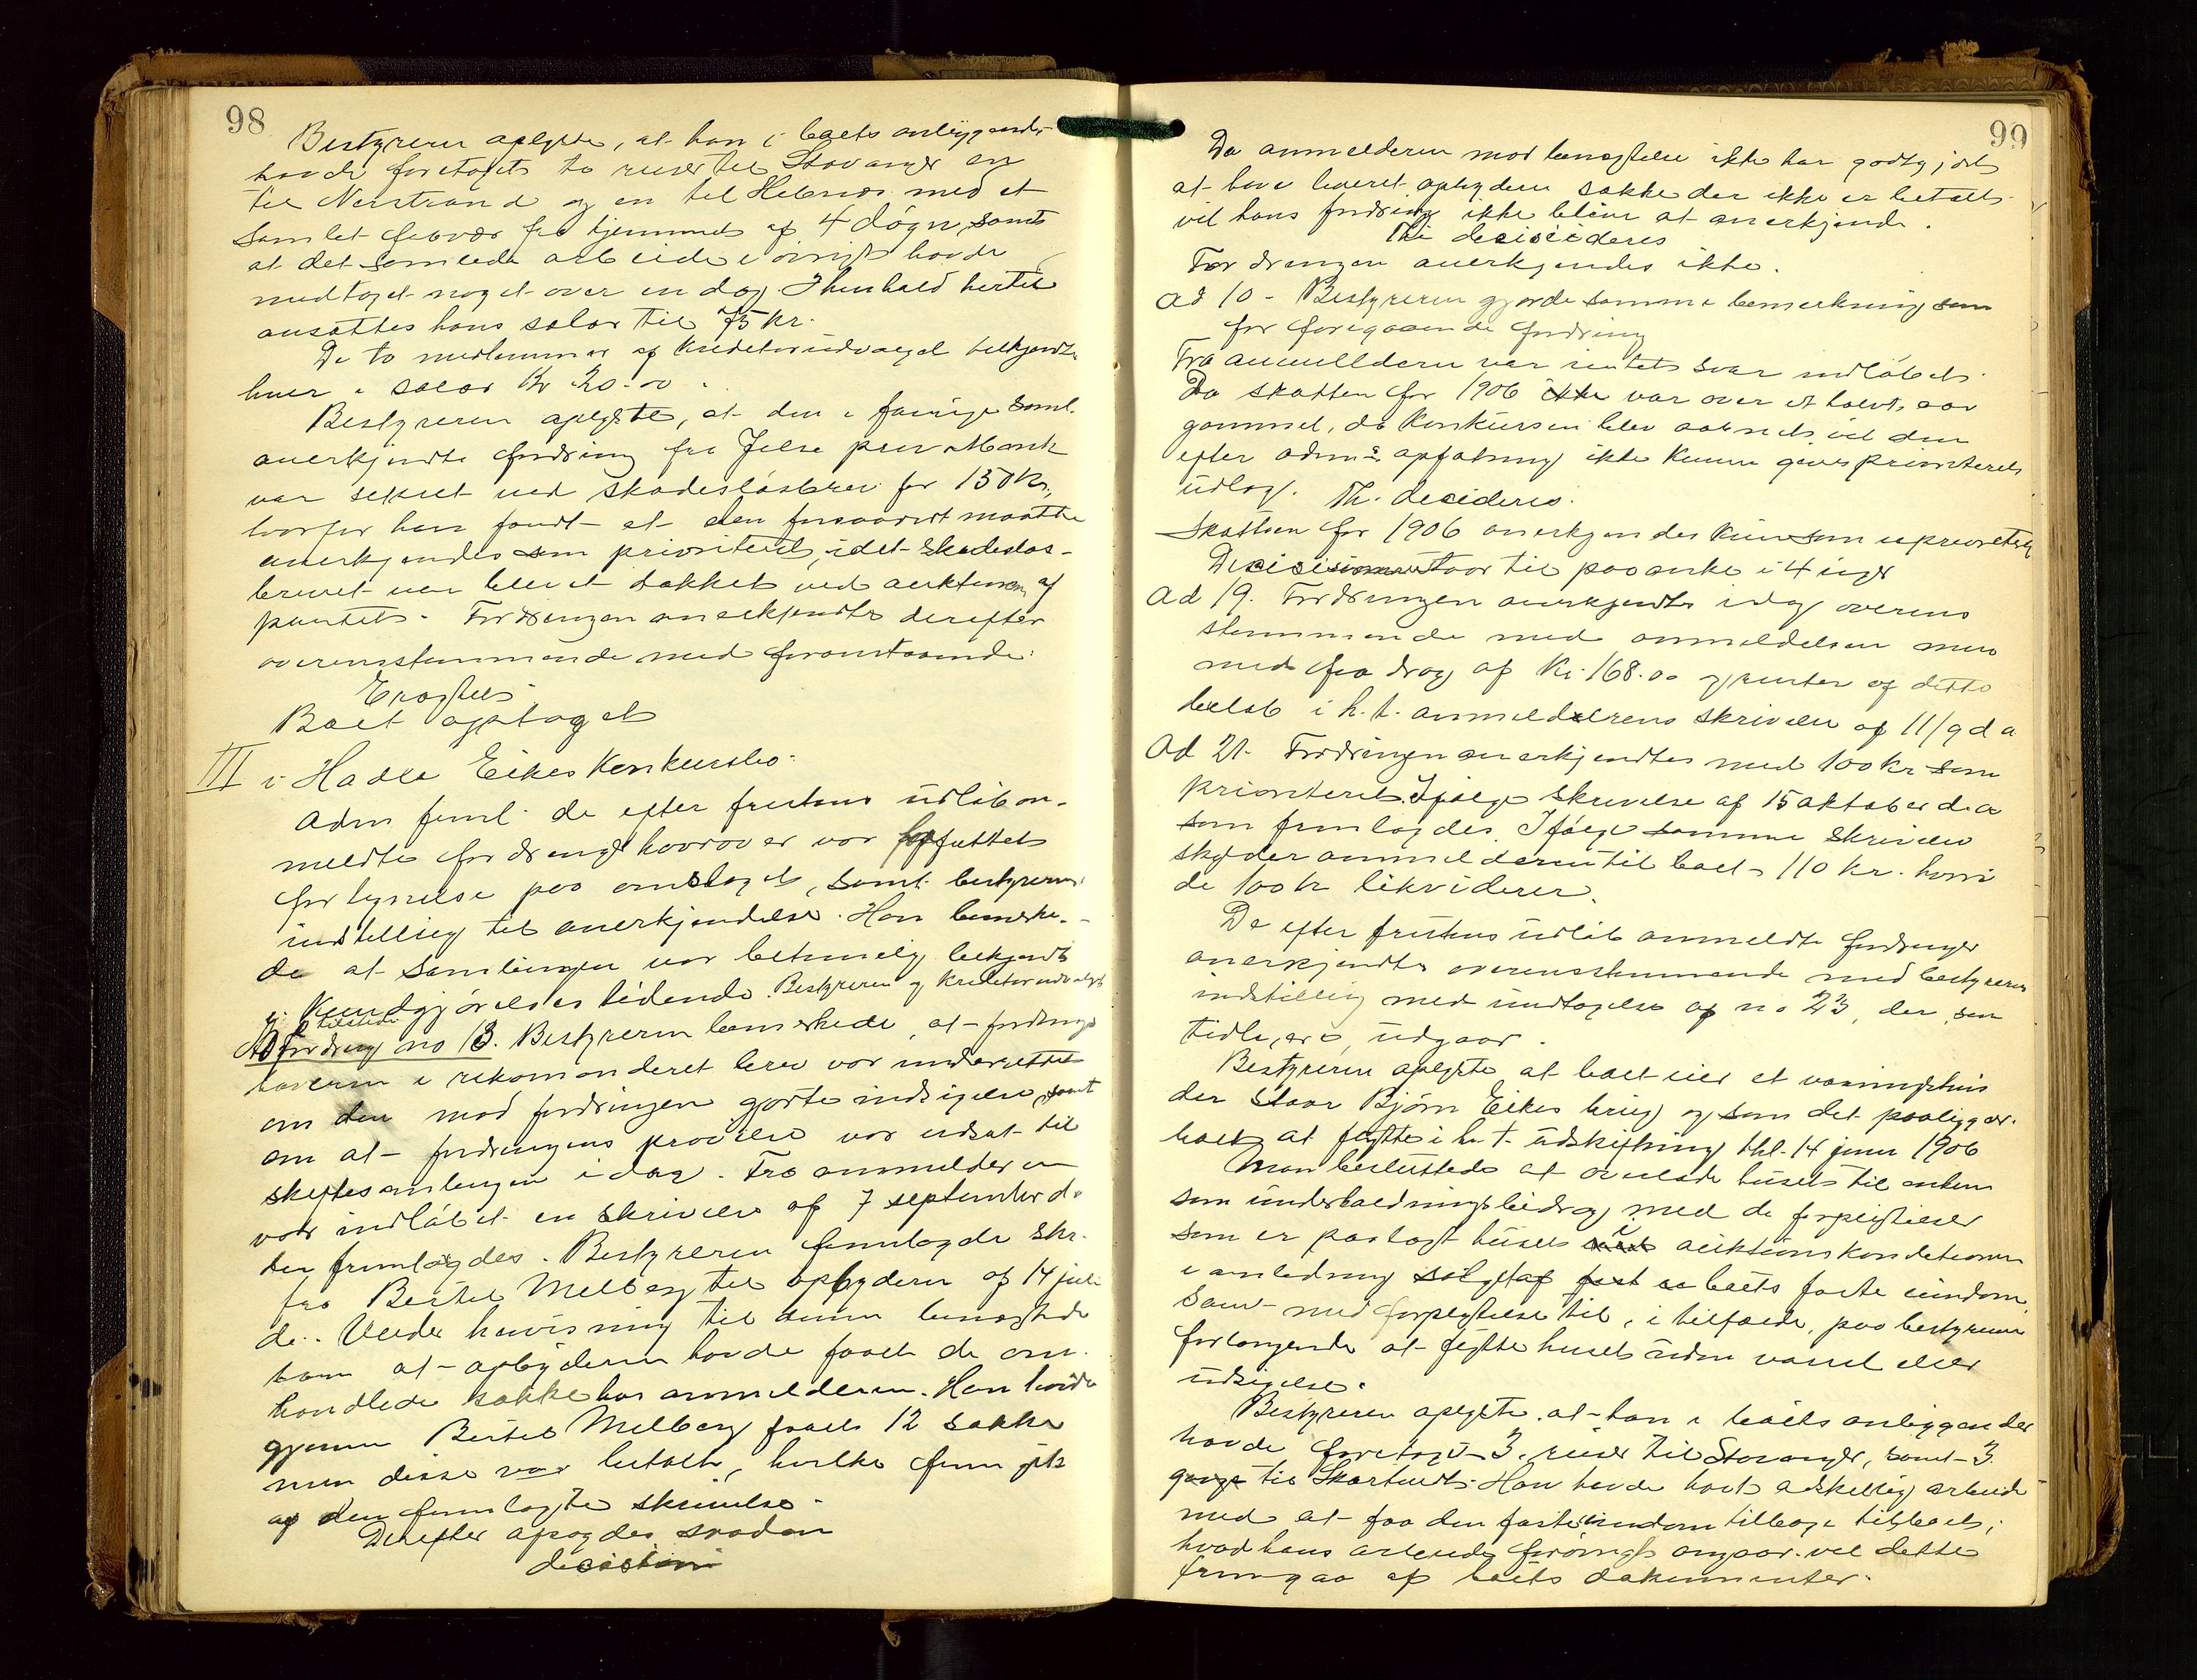 98
Bestyreren oplyste, at han i boets anliggende
havde foretaget to reiser til Stavanger en
til Nerstrand og en til Hebnes med et
samlet fravær fra hjemmet af 4 døgn, samt
at det samlede arbeide iøvrigt havde
medtaget noget over en dag. I henhold hertil
ansattes hans salær til 75 kr.
De to medlemmer af kreditorudvalget tilkjendtes
hver i salær Kr 20.00.
Bestyreren oplyste, at den i forrige saml.
anerkjendte fordring fra Jelse privat Bank
var sikret ved skadesløsbrev for 150 Kr.,
hvorfor han fandt at den forsaavidt maatte
anerkjendes som prioriteret, idet skadesløs-
brevet var blevet dækket ved auktionen af
pantet. Fordringen anerkjendtes derefter
overensstemmende med foranstaaende.
Fragfeldt
Boet optaget
III i Hadle Eikes Konkursbo.
Adm freml. de efter fristens udløb an-
meldte fordringer hvorover var forfattet
fortegnelse paa omslaget, samt bestyrerens
indstilling til anerkjendelse. Han bemerke-
de at samlingen var betimelig bekjendt
i Kundgjørelsestidende. Bestyreren og kreditorudvalget
tilstede
Ad fordring no 13. Bestyreren bemerkede, at fordrings
haveren i rekomanderet brev var underrettet
om den mod fordringen gjorte indsigelse, samt
om at fordringens prøvelse var udsat til
skiftesamlingen idag. Fra anmelderen
var indløbet en skrivelse af 7 september d.a.
der fremlagdes. Bestyreren fremlagde skr.
fra Bertel Melberg til opbyderen af 14 juli
d.a. Under henvisning til denne benegtede
han at opbyderen havde faaet de om-
handlede sække hos anmelderen. Han havde
gjennem Bertel Melberg faaet 12 sække
men disse var betalt, hvilke fremgik
af den fremlagte skrivelse.
Derefter afsagdes saadan
decision
99
Da anmelderen mod benegtelse ikke har godtgjort
at have leveret opbyderen sække der ikke er betalt
vil hans fordring ikke blive at anerkjende.
Thi decideres
Fordringen anerkjendes ikke.
Ad 10 - Bestyreren gjorde samme bemerkning som
for foregaaende fordring
Fra anmelderen var intet svar indløbet.
Da skatten for 1906 ikke var over et halvt aar
gammel, da konkursen blev aabnet, vil den
efter adms opfatning ikke kunne gives prioriteret
udlæg. Thi decideres.
Skatten for 1906 anerkjendes kun som uprioriteret
Decisionen staar til paaanke i 4 uger
Ad 19. Fordringen anerkjendtes idag overens
stemmende med anmeldelsen men
med fradrag af Kr. 168.00 og renter af ditto
beløb i h. t. anmelderens skrivelse af 11/9 d a
Ad 21. Fordringen anerkjendtes med 100 kr som
prioriteret. Ifølge skrivelse af 15 oktober d.a
som fremlagdes. Ifølge samme skrivelse
skylder anmelderen til boet 110 kr. hvori
de 100 kr likviderer.
De efter fristens udløb anmeldte fordringer
anerkjendtes overensstemmende med bestyrerens
indstilling med undtagelse af no 23, der, som
tidligere, udgaar.
Bestyreren oplyste at boet eier et vaaningshus
der staar Bjørn Eikes brug og som det paaligger
boet at flytte i h. t. udskiftning thl. 14 juni 1906
Man besluttede at overlade huset til enken
som underholdningsbidrag med de forpligtelser
som er paalagt huset i auktionskonditionen
i anledning salget af boets faste eiendom
samt med forpligtelse til, i tilfælde, paa bestyrerens
forlangende at flytte huset uden varsel eller
udsigelse.
Bestyreren oplyste, at han i boets anliggender
havde foretaget 3 reiser til Stavanger, samt 3
gange til Skartveit. Han havde havt adskillig arbeide
med at faa den faste eiendom tilbage til boet;
hvad hans arbeide forøvrigt angaar vil dette
fremgaa af boets dokumenter.